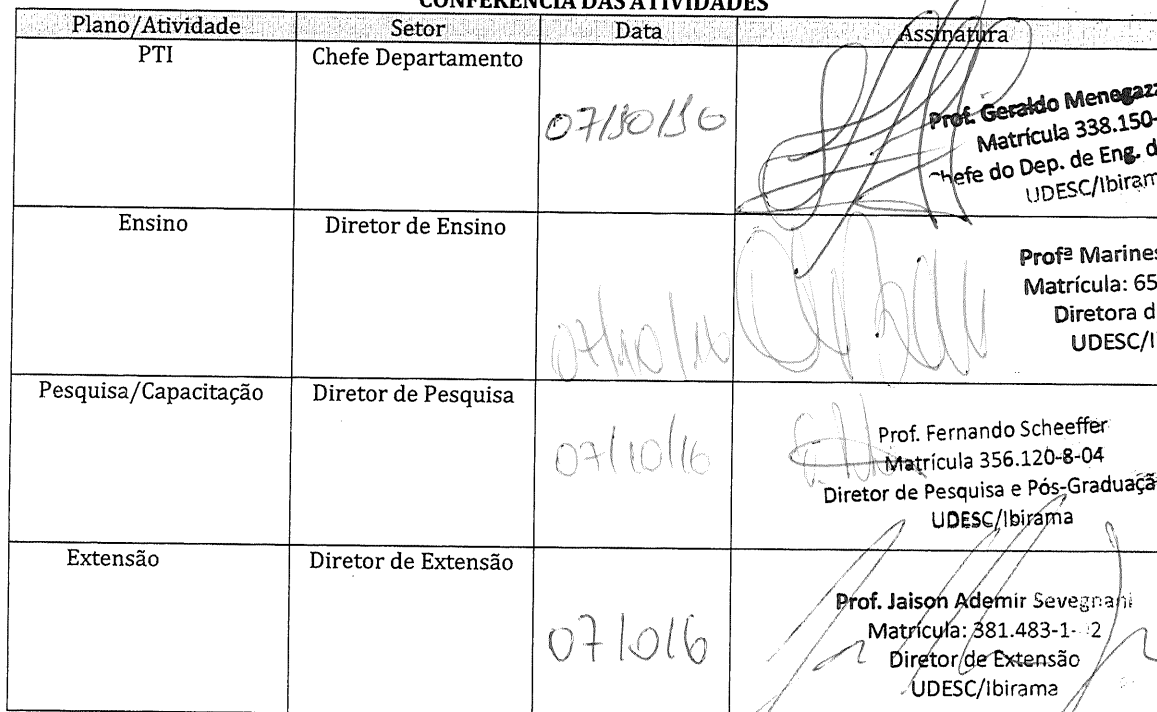 CONFERÊNCIA DAS ATIVIDADES
Plano/Atividade Setor Data Assinatura
PTI Chefe Departamento
07/10/16
Prof. Geraldo Menegazz
Matrícula 338.150-
Chefe do Dep. de Eng. d
UDESC/Ibiram
Ensino Diretor de Ensino
07/10/16
Profª Marines
Matrícula: 65
Diretora d
UDESC/I
Pesquisa/Capacitação Diretor de Pesquisa
07/10/16
Prof. Fernando Scheeffer
Matrícula 356.120-8-04
Diretor de Pesquisa e Pós-Graduaçã
UDESC/Ibirama
Extensão Diretor de Extensão
07/10/16
Prof. Jaison Ademir Sevegnani
Matrícula: 381.483-1- 2
Diretor de Extensão
UDESC/Ibirama